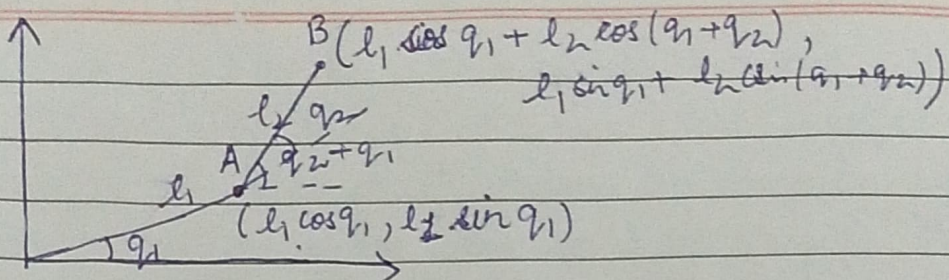 B (l₁ cos q₁ + l₂ cos(q₁+q₂),
l₁ sin q₁ + l₂ sin(q₁+q₂))
l₂ q₂
A q₂+q₁
l₁
(l₁ cosq₁, l₁ sin q₁)
q₁